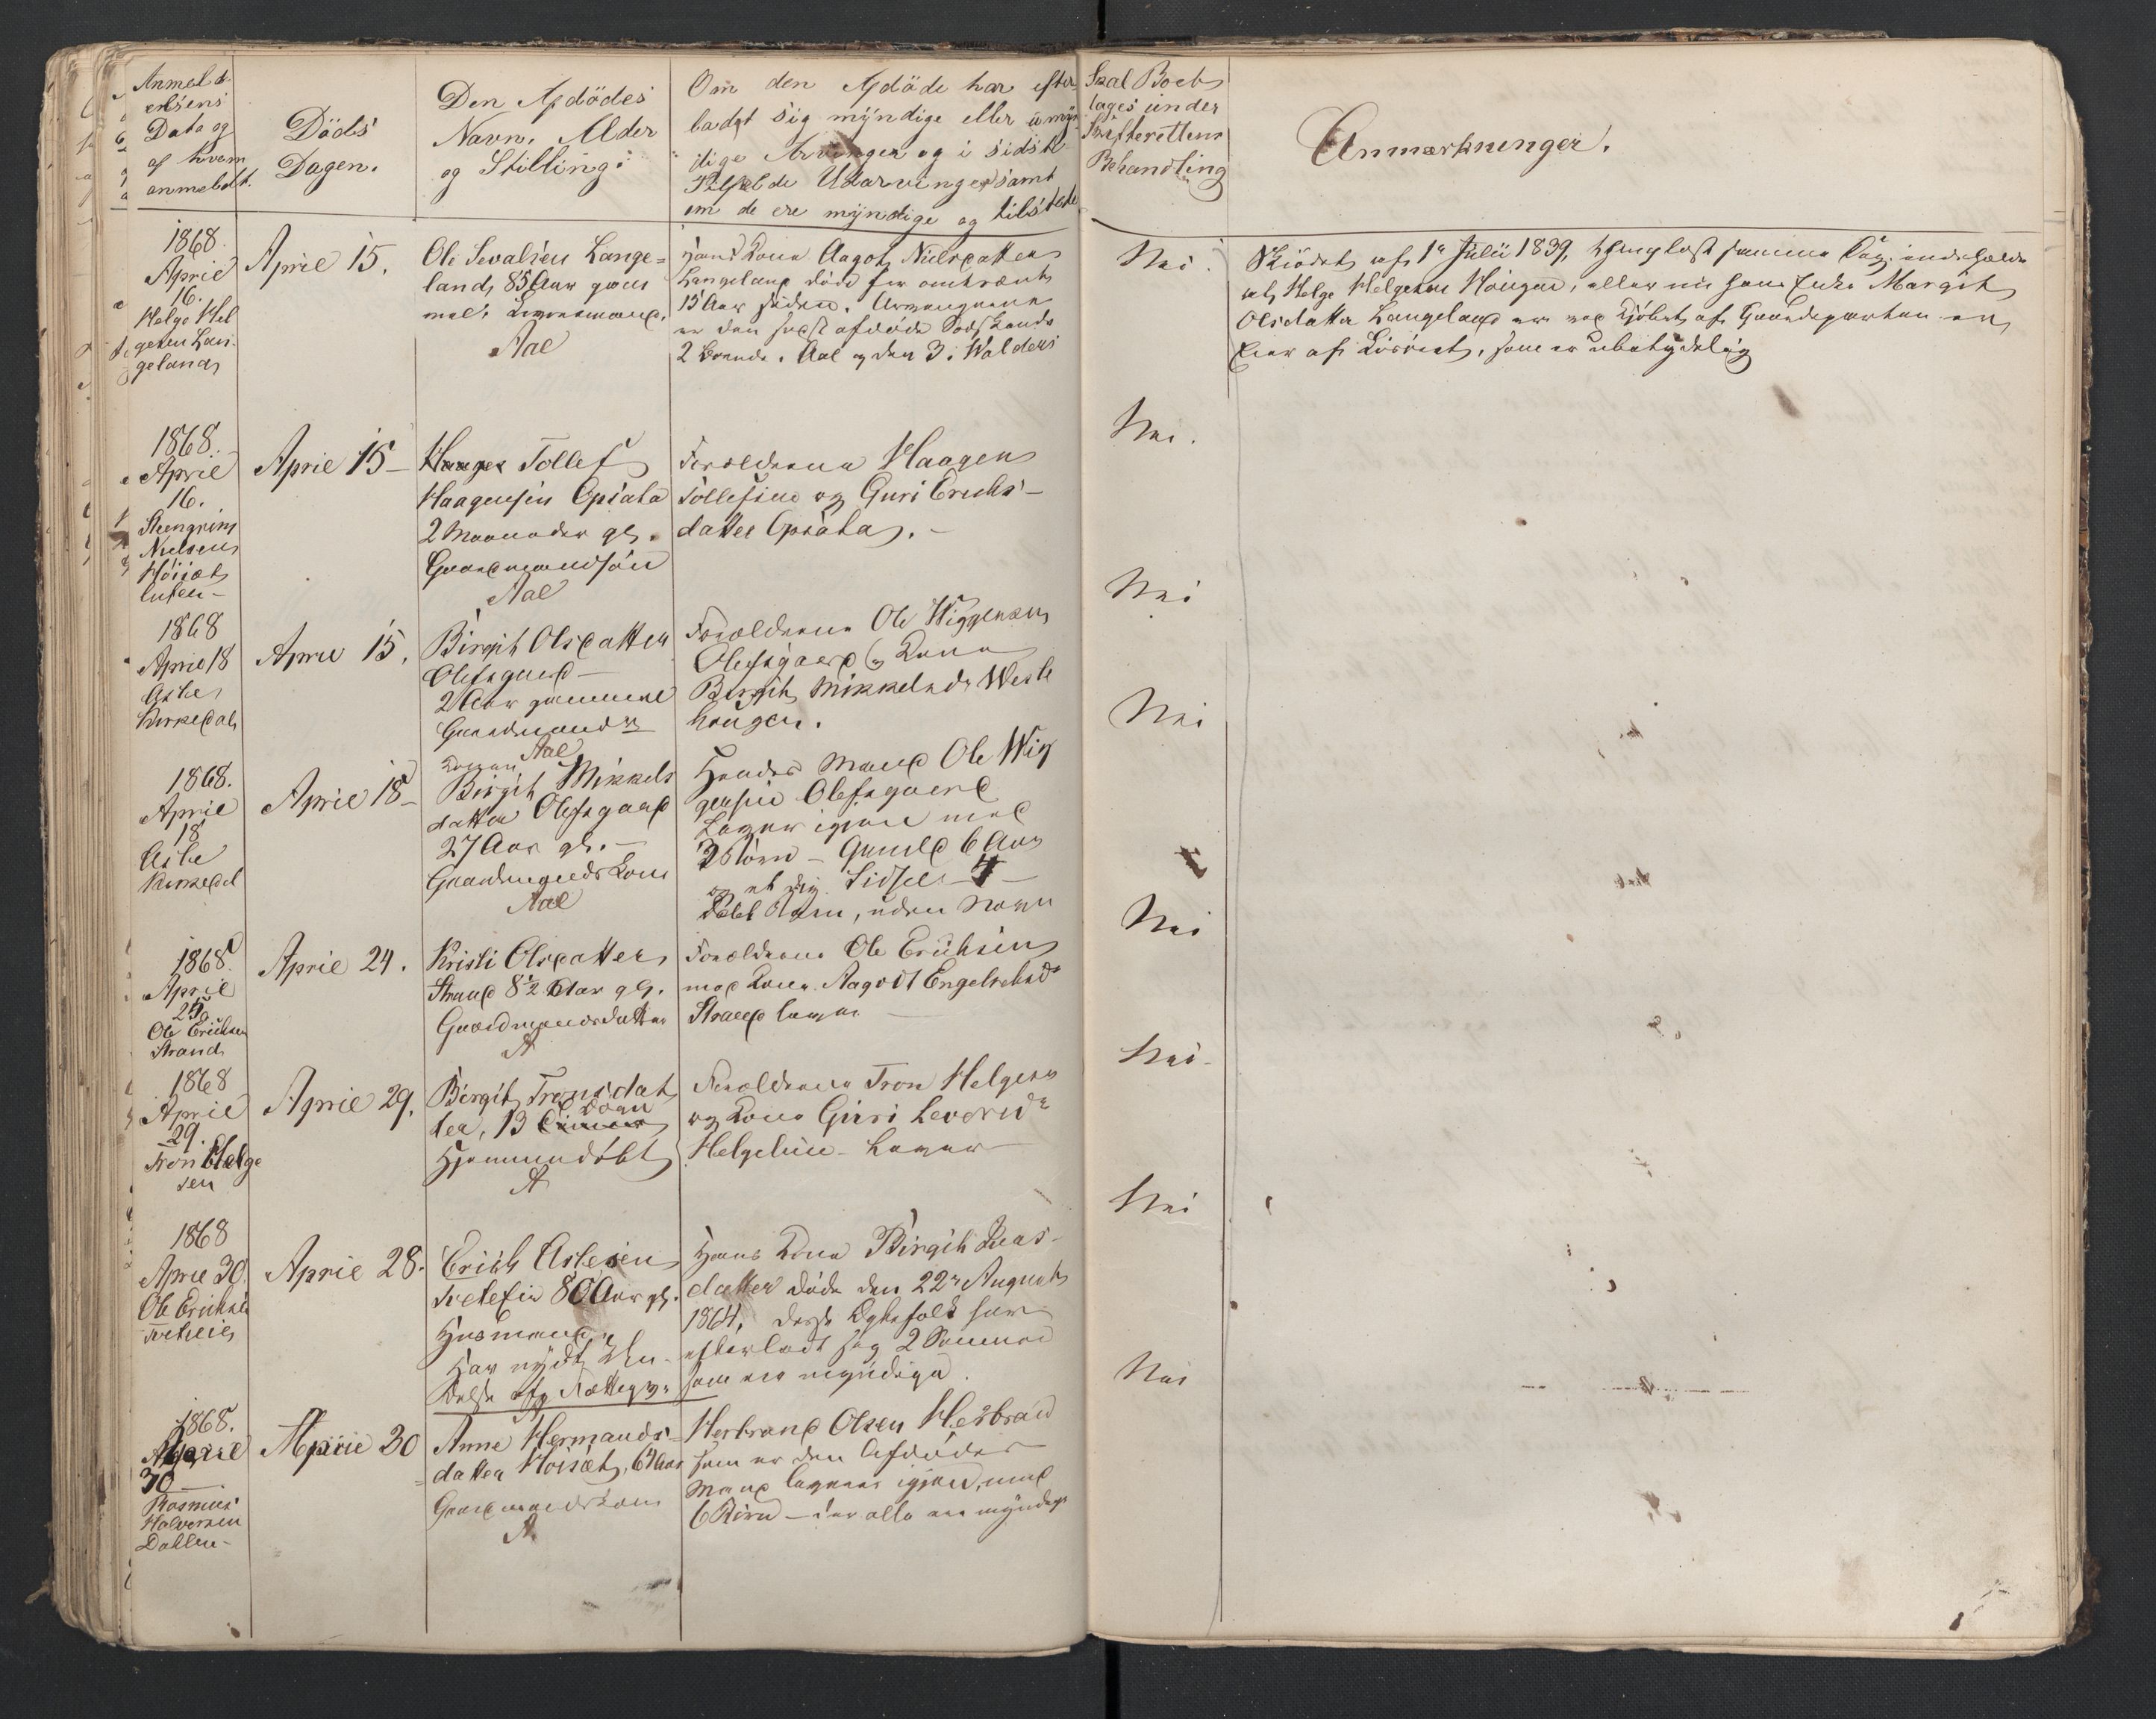 Anmeld-
elsens
Dato og
af hvem
anmeldt.
Döds
Dagen.
Den Afdödes
Navn, Alder
og Stilling.
Om den Afdöde har efter
ladt sig myndige eller umyn
dige Arvinger og i sidste
Tilfælde Udarvinger samt
om de ere myndige og tilstede
Skal Boet
tages under
Skifterettens
Behandling
Anmærkninger.
1868.
April
16.
Helge Hel
gesen Lan-
geland
April 15.
Ole Sevalsen Lange=
land, 85 Aar gam
mel. Livøresmand.
Aal
Hans Kone Aagot Nielsdatter
Langeland døde for omtrent
15 Aar siden. Arvingerne
er den sidst afdøde Sødskende
2 boende i Aal og den 3 i Walders
Nei.
Skiödet af 1e Julii 1839, thinglæst samme Dag, indehaves
af Helge Helgesen Hougen, eller nu hans Enke Margit
Olsdatter Langeland
som er ubetydelig
1868.
April
16.
Stengrim
Nielsen
Höisæt
April 15-
Tollef
Haagensen Opsata
2 Maaneder gl.
Gaardmandssön
Aal
Forældrene Haagen
Tollefsen og Guri Erichs-
datter Opsata. -
Nei.
1868
April 18
Asle
Kirkedal
April 15.
Birgit Olsdatter
Olefsgaard -
2 Aar gammel
Gaardmands
Aal
Forældrene Ole Wiggensen
Olefsgaard og Kone
Birgit Mikkelsdr Wesle
hougen.
Nei
1868.
April
18
Asle
Kirkedal
April 18-
Konen
Birgit Mikkels
datter Olefsgaard
27 Aar gl. -
Gaardmands Kone
Aal
Hendes Mand Ole Wig
gensen Olefsgaard
Lever igjen med
2 Börn - Gunild 6 Aar
og Sidsel - 4 -
döbt Barn, uden Navn
Nei
1868
April
25
Ole Erichsen
Strand
April 24.
Kristi Olsdatter
Strand 8½ Aar gl.
Gaardmandsdatter
A
Forældrene Ole Erichsen
med Kone Aagodt Engelschsdr
Strand lever -
Nei
1868
April
29.
Tron Helge
sen
April 29.
Birgit Tronsdat
ter, 13 Dage
Hjemmedöbt
A
Forældrene Tron Helgesen
og Kone Guri Levorsdr
Helgelien - Lever -
Nei-
1868
April 30.
Ole Erichsen
Tveteie
April 28.
Erich Aslesen
Tveteie 80 Aar gl.
Husmand,
Har nydt Un-
A
Hans Kone Birgit Larsdatter
döde den 22de August
1864, desse Egtefolk har
efterladt sig 2 Sönner
som ere myndige.
Nei
1868.
April
30
Rasmus
Halvorsen
Dahlen-
April 30
Anne Hermands-
datter Höisæt, 67 Aar
Gaardmandskone
A
Herbrand Olsen Herbrand
som er den Afdødes
Mand lever igjen, med
6 Börn - der alle ere myndige
Nei